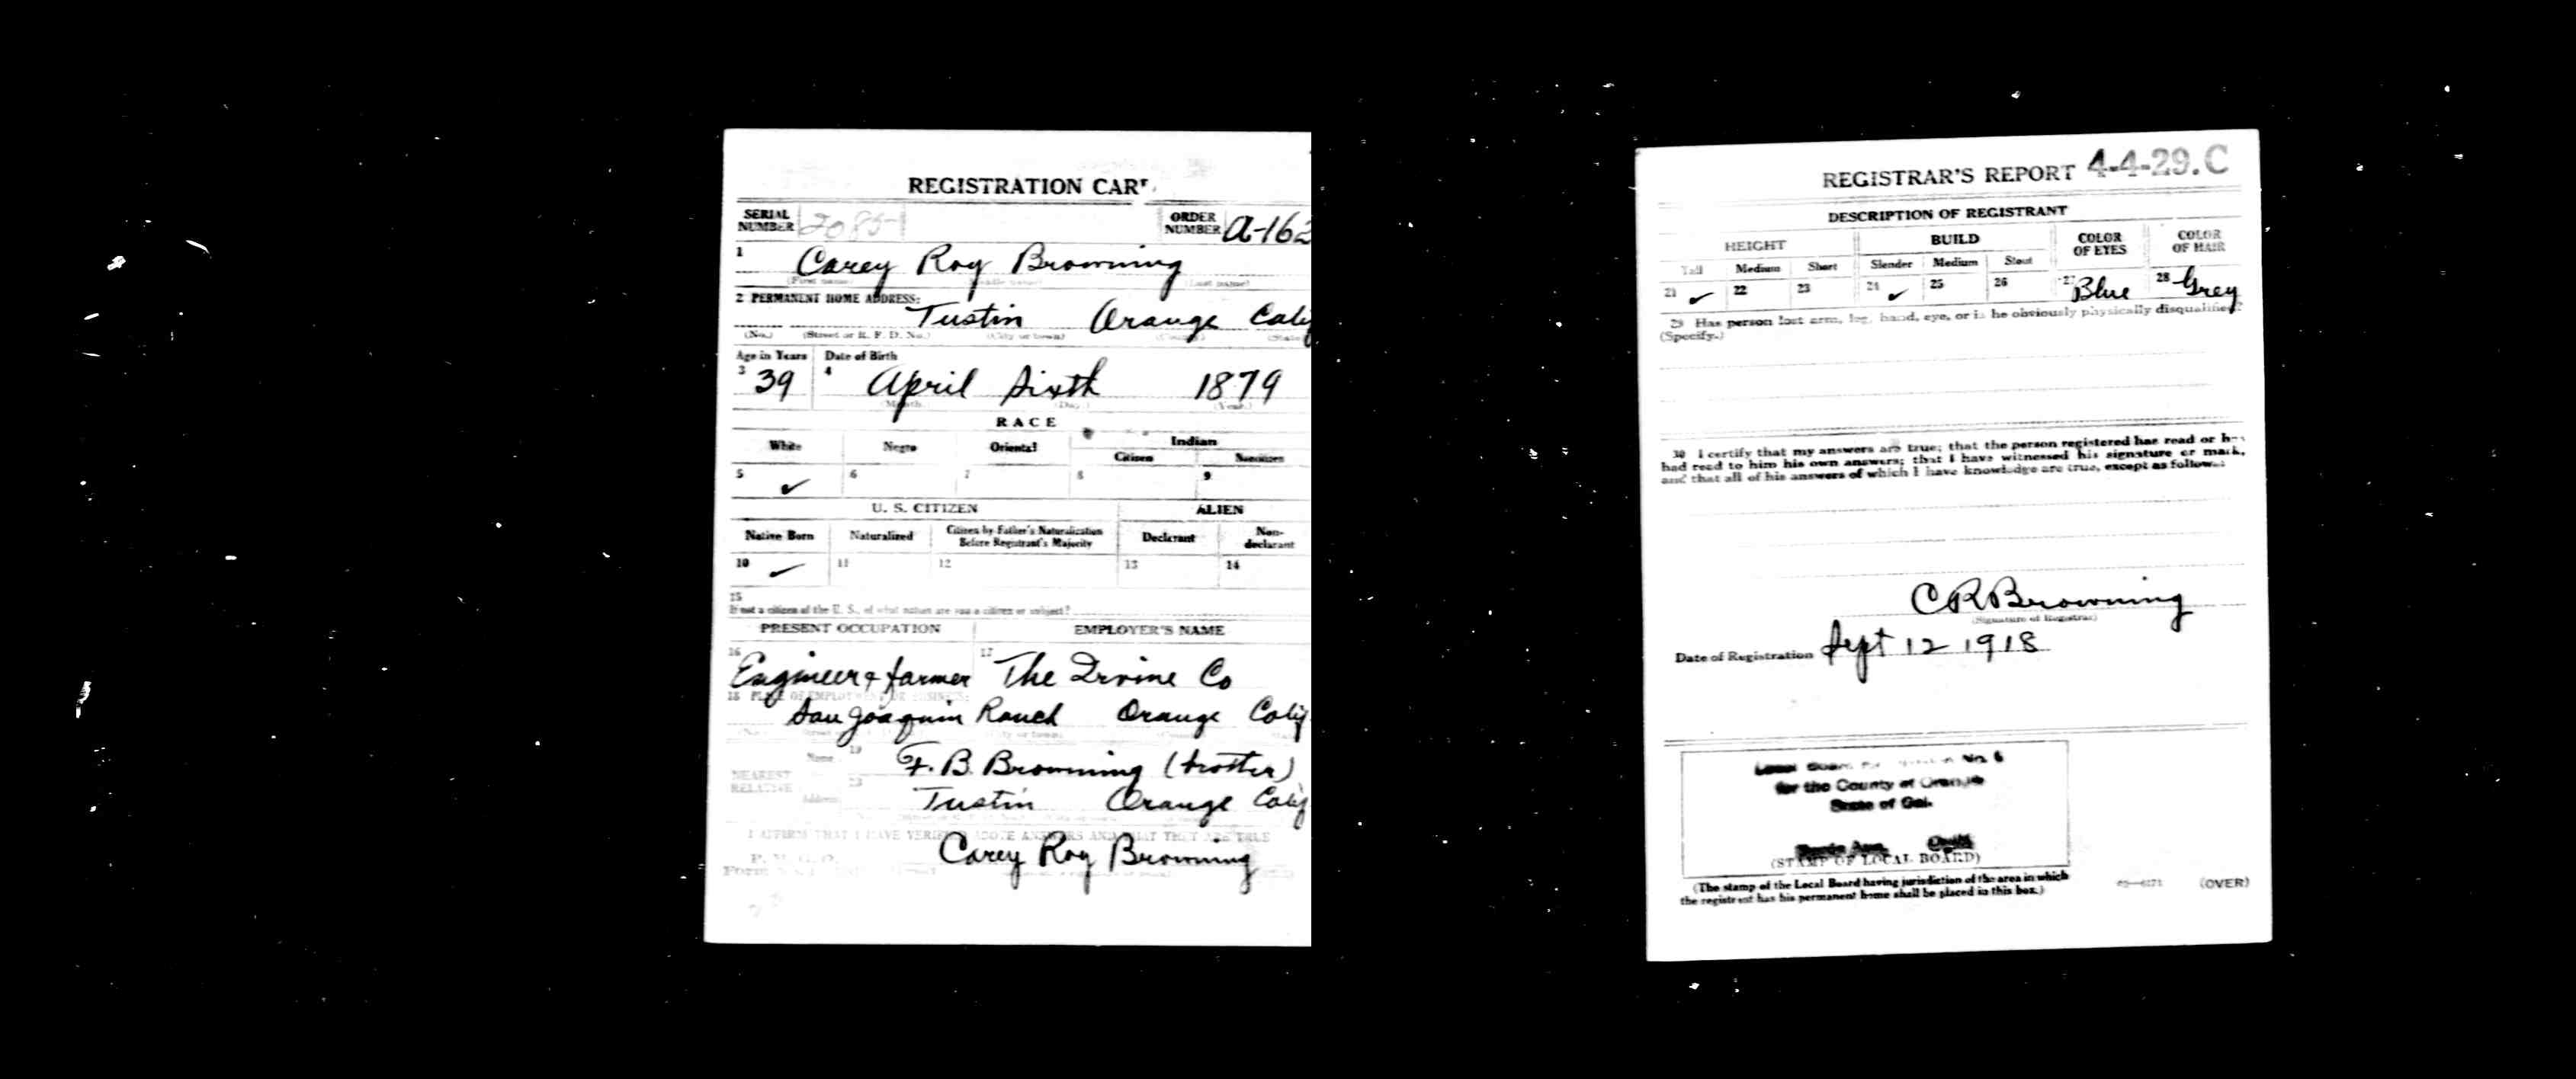 REGISTRATION CAR
SERIAL NUMBER 2085 ORDER NUMBER A-162
1 Carey Roy Browning
(First name) (Middle name) (Last name)
2 PERMANENT HOME ADDRESS:
Tustin Orange Calif
(No.) (Street or R. F. D. No.) (City or town) (County) (State)
Age in Years Date of Birth
3 39 4 April Sixth 1879
(Month.) (Day.) (Year.)
RACE
White Negro Oriental Indian
Citizen Noncitizen
5 ✓ 6 7 8 9
U. S. CITIZEN ALIEN
Native Born Naturalized Citizen by Father's Naturalization Before Registrant's Majority Declarant Non-declarant
10 ✓ 11 12 13 14
15
If not a citizen of the U. S., of what nation are you a citizen or subject?
PRESENT OCCUPATION EMPLOYER'S NAME
16 Engineer & farmer 17 The Irvine Co
18 PLACE OF EMPLOYMENT OR BUSINESS:
San Joaquin Ranch Orange Calif
(No.) (City or town)
NEAREST RELATIVE Name 19 F. B. Browning (brother)
Address 20 Tustin Orange Calif
I AFFIRM THAT I HAVE VERIFIED ABOVE ANSWERS AND THAT THEY ARE TRUE
P. M. G. O.
Form
Carey Roy Browning
REGISTRAR'S REPORT 4-4-29.C
DESCRIPTION OF REGISTRANT
HEIGHT BUILD COLOR OF EYES COLOR OF HAIR
Tall Medium Short Slender Medium Stout
21 ✓ 22 23 24 ✓ 25 26 27 Blue 28 Grey
29 Has person lost arm, leg, hand, eye, or is he obviously physically disqualified?
(Specify.)
30 I certify that my answers are true; that the person registered has read or has
had read to him his own answers; that I have witnessed his signature or mark,
and that all of his answers of which I have knowledge are true, except as follows:
C R Browning
(Signature of Registrar)
Date of Registration Sept 12 1918
Local Board for No. 6
for the County of Orange
State of Cal.
Santa Ana,
(STAMP OF LOCAL BOARD)
(The stamp of the Local Board having jurisdiction of the area in which
the registrant has his permanent home shall be placed in this box.)
(OVER)